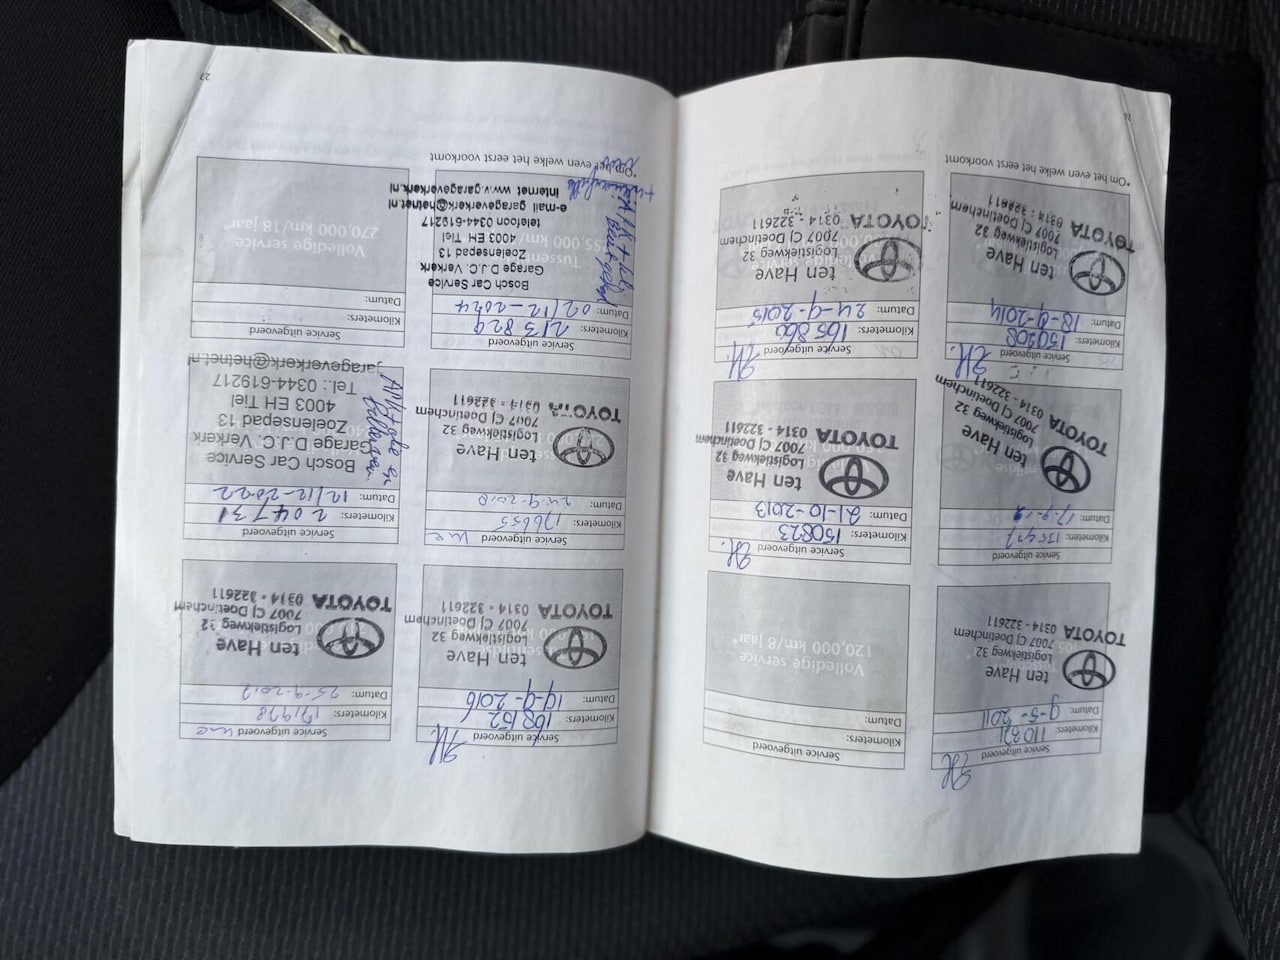 Service uitgevoerd
Kilometers: 110321
Datum: 9-5-2011
ten Have
Logistiekweg 32
7007 CJ Doetinchem
TOYOTA 0314 - 322611
Service uitgevoerd
Kilometers:
Datum:
Volledige service
120,000 km/8 jaar*
Service uitgevoerd
Kilometers:
Datum:
ten Have
Logistiekweg 32
7007 CJ Doetinchem
TOYOTA 0314 - 322611
Service uitgevoerd
Kilometers: 150823
Datum: 21-10-2013
ten Have
Logistiekweg 32
7007 CJ Doetinchem
TOYOTA 0314 - 322611
Service uitgevoerd
Kilometers:
Datum: 18-9-2014
ten Have
Logistiekweg 32
7007 CJ Doetinchem
TOYOTA 0314 - 322611
Service uitgevoerd
Kilometers: 165860
Datum: 24-9-2015
ten Have
Logistiekweg 32
7007 CJ Doetinchem
TOYOTA 0314 - 322611
*Om het even welke het eerst voorkomt
26
Service uitgevoerd
Kilometers: 168152
Datum: 19-9-2016
ten Have
Logistiekweg 32
7007 CJ Doetinchem
TOYOTA 0314 - 322611
Service uitgevoerd
Kilometers: 171978
Datum: 25-9-2017
ten Have
Logistiekweg 32
7007 CJ Doetinchem
TOYOTA 0314 - 322611
Service uitgevoerd
Kilometers: 176655
Datum: 24-9-2018
ten Have
Logistiekweg 32
7007 CJ Doetinchem
TOYOTA 0314 - 322611
Service uitgevoerd
Kilometers: 204731
Datum: 12/12-2022
Bosch Car Service
Garage D.J.C. Verkerk
Zoelensepad 13
4003 EH Tiel
Tel.: 0344-619217
garageverkerk@hetnet.nl
Service uitgevoerd
Kilometers: 213829
Datum: 02/12-2024
Bosch Car Service
Garage D.J.C. Verkerk
Zoelensepad 13
4003 EH Tiel
telefoon 0344-619217
e-mail garageverkerk@hetnet.nl
internet www.garageverkerk.nl
Service uitgevoerd
Kilometers:
Datum:
Volledige service
270,000 km/18 jaar*
*Om het even welke het eerst voorkomt
27